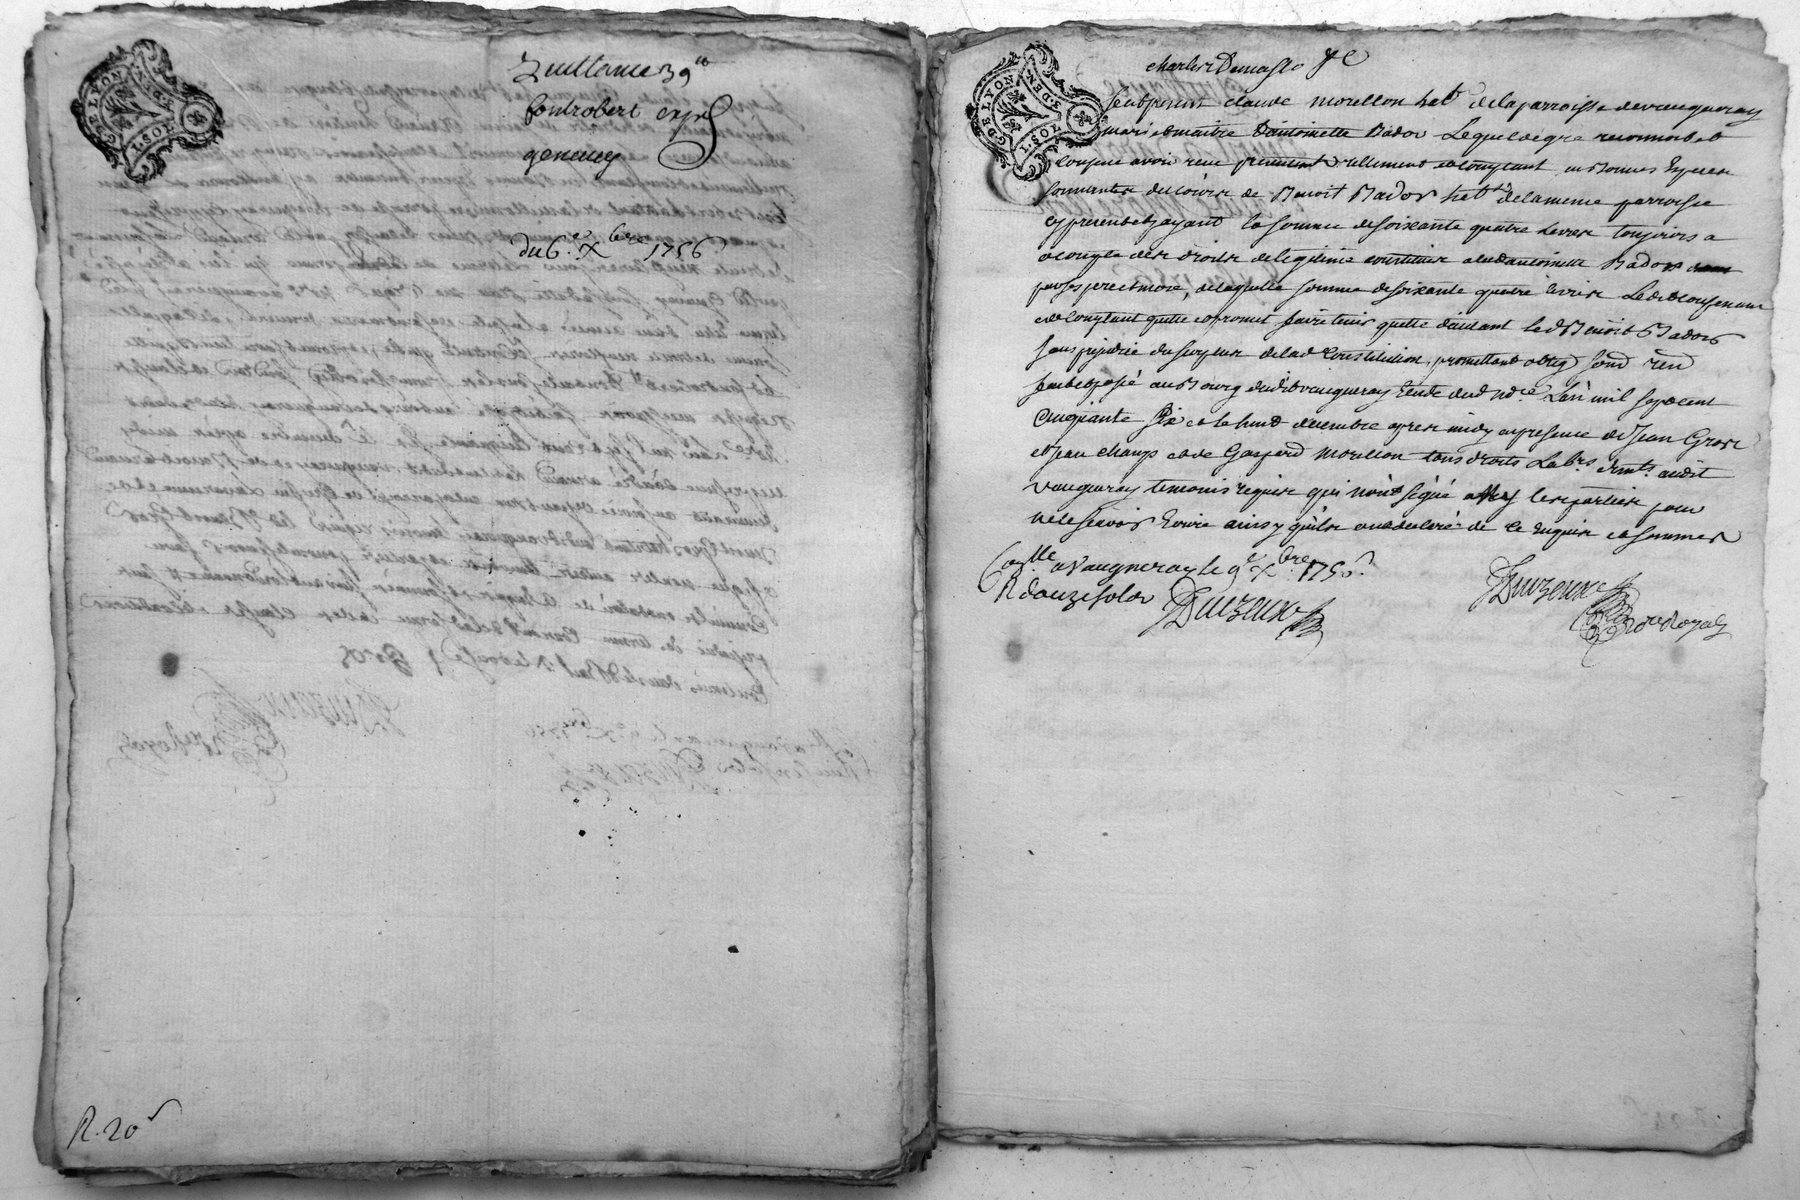 GDE LYON
3.DEN
1.SOL
Quittance 39
fontrobert
du 6e Xbre 1756
R. 20s
GDE LYON
3.DEN
1.SOL
charles Demasso
fut present claude morellon habt de la parroisse de vaugneray
mari et maitre d'antoinette Bador Lequel de gré reconnoit et
confesse avoir receu presentement réellement et comptant en bonnes especes
sonnantes du cours de Benoit Bador habt de la meme parroisse
cy present et payant la somme de soixante quatre livres toujours a
acompte des droits de legitime constitués a lad antoinette Bador
par ses pere et mere, de laquelle somme de soixante quatre livres Led
comptant quitte et promet faire tenir quitte d'autant led Benoit Bador
sans prejudice du surplus de lad Constitution, promettant oblig
fait et passé au Bourg dudit vaugneray Etude dud nore L'an mil sept cent
cinquante six et le huit decembre apres midy en presence de Jean Gros
et Jean champ et de Gaspard morellon tous droits
vaugneray temoins requis qui n'ont signé ny les parties pour
ne le scavoir Ecrire ainsy qu'ils ont declaré de ce enquis et sommes
Collé a Vaugneray le 9e Xbre 1756
R douze sols